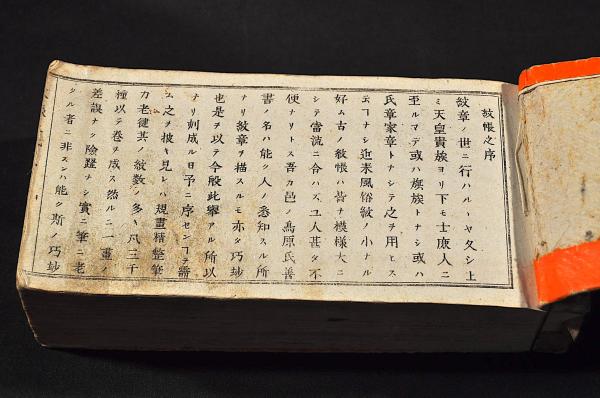 紋帳之序
紋章ノ世ニ行ハルヽヤ久シ上
ミ天皇貴族ヨリ下モ士庶人ニ
至ルマデ或ハ旗族トナシ或ハ
氏章家章トナシテ之ヲ用ヒス
云ヿナシ近来風俗紋ノ小ナル
好ム古ノ紋帳ハ皆ナ模様大ニ
シテ當流ニ合ハズユ人甚タ不
便ナリトス吾カ邑ノ髙原氏善
書ノ名ハ能ク人ノ悉知スル所
ナリ紋章ヲ描スルモ亦タ巧玅
也是ヲ以テ今般此擧アル所以
ナリ刻成ル日予ニ序センヿヲ請
ユ之ヲ披キ見レハ規畫精整筆
力老健其ノ紋数ノ多キ凡三千
種以テ巻ヲ成ス然ルニ一畫ノ
差誤ナク險蹬ナシ實ニ筆ニ老
タル者ニ非スンハ能ク斯ノ巧玅